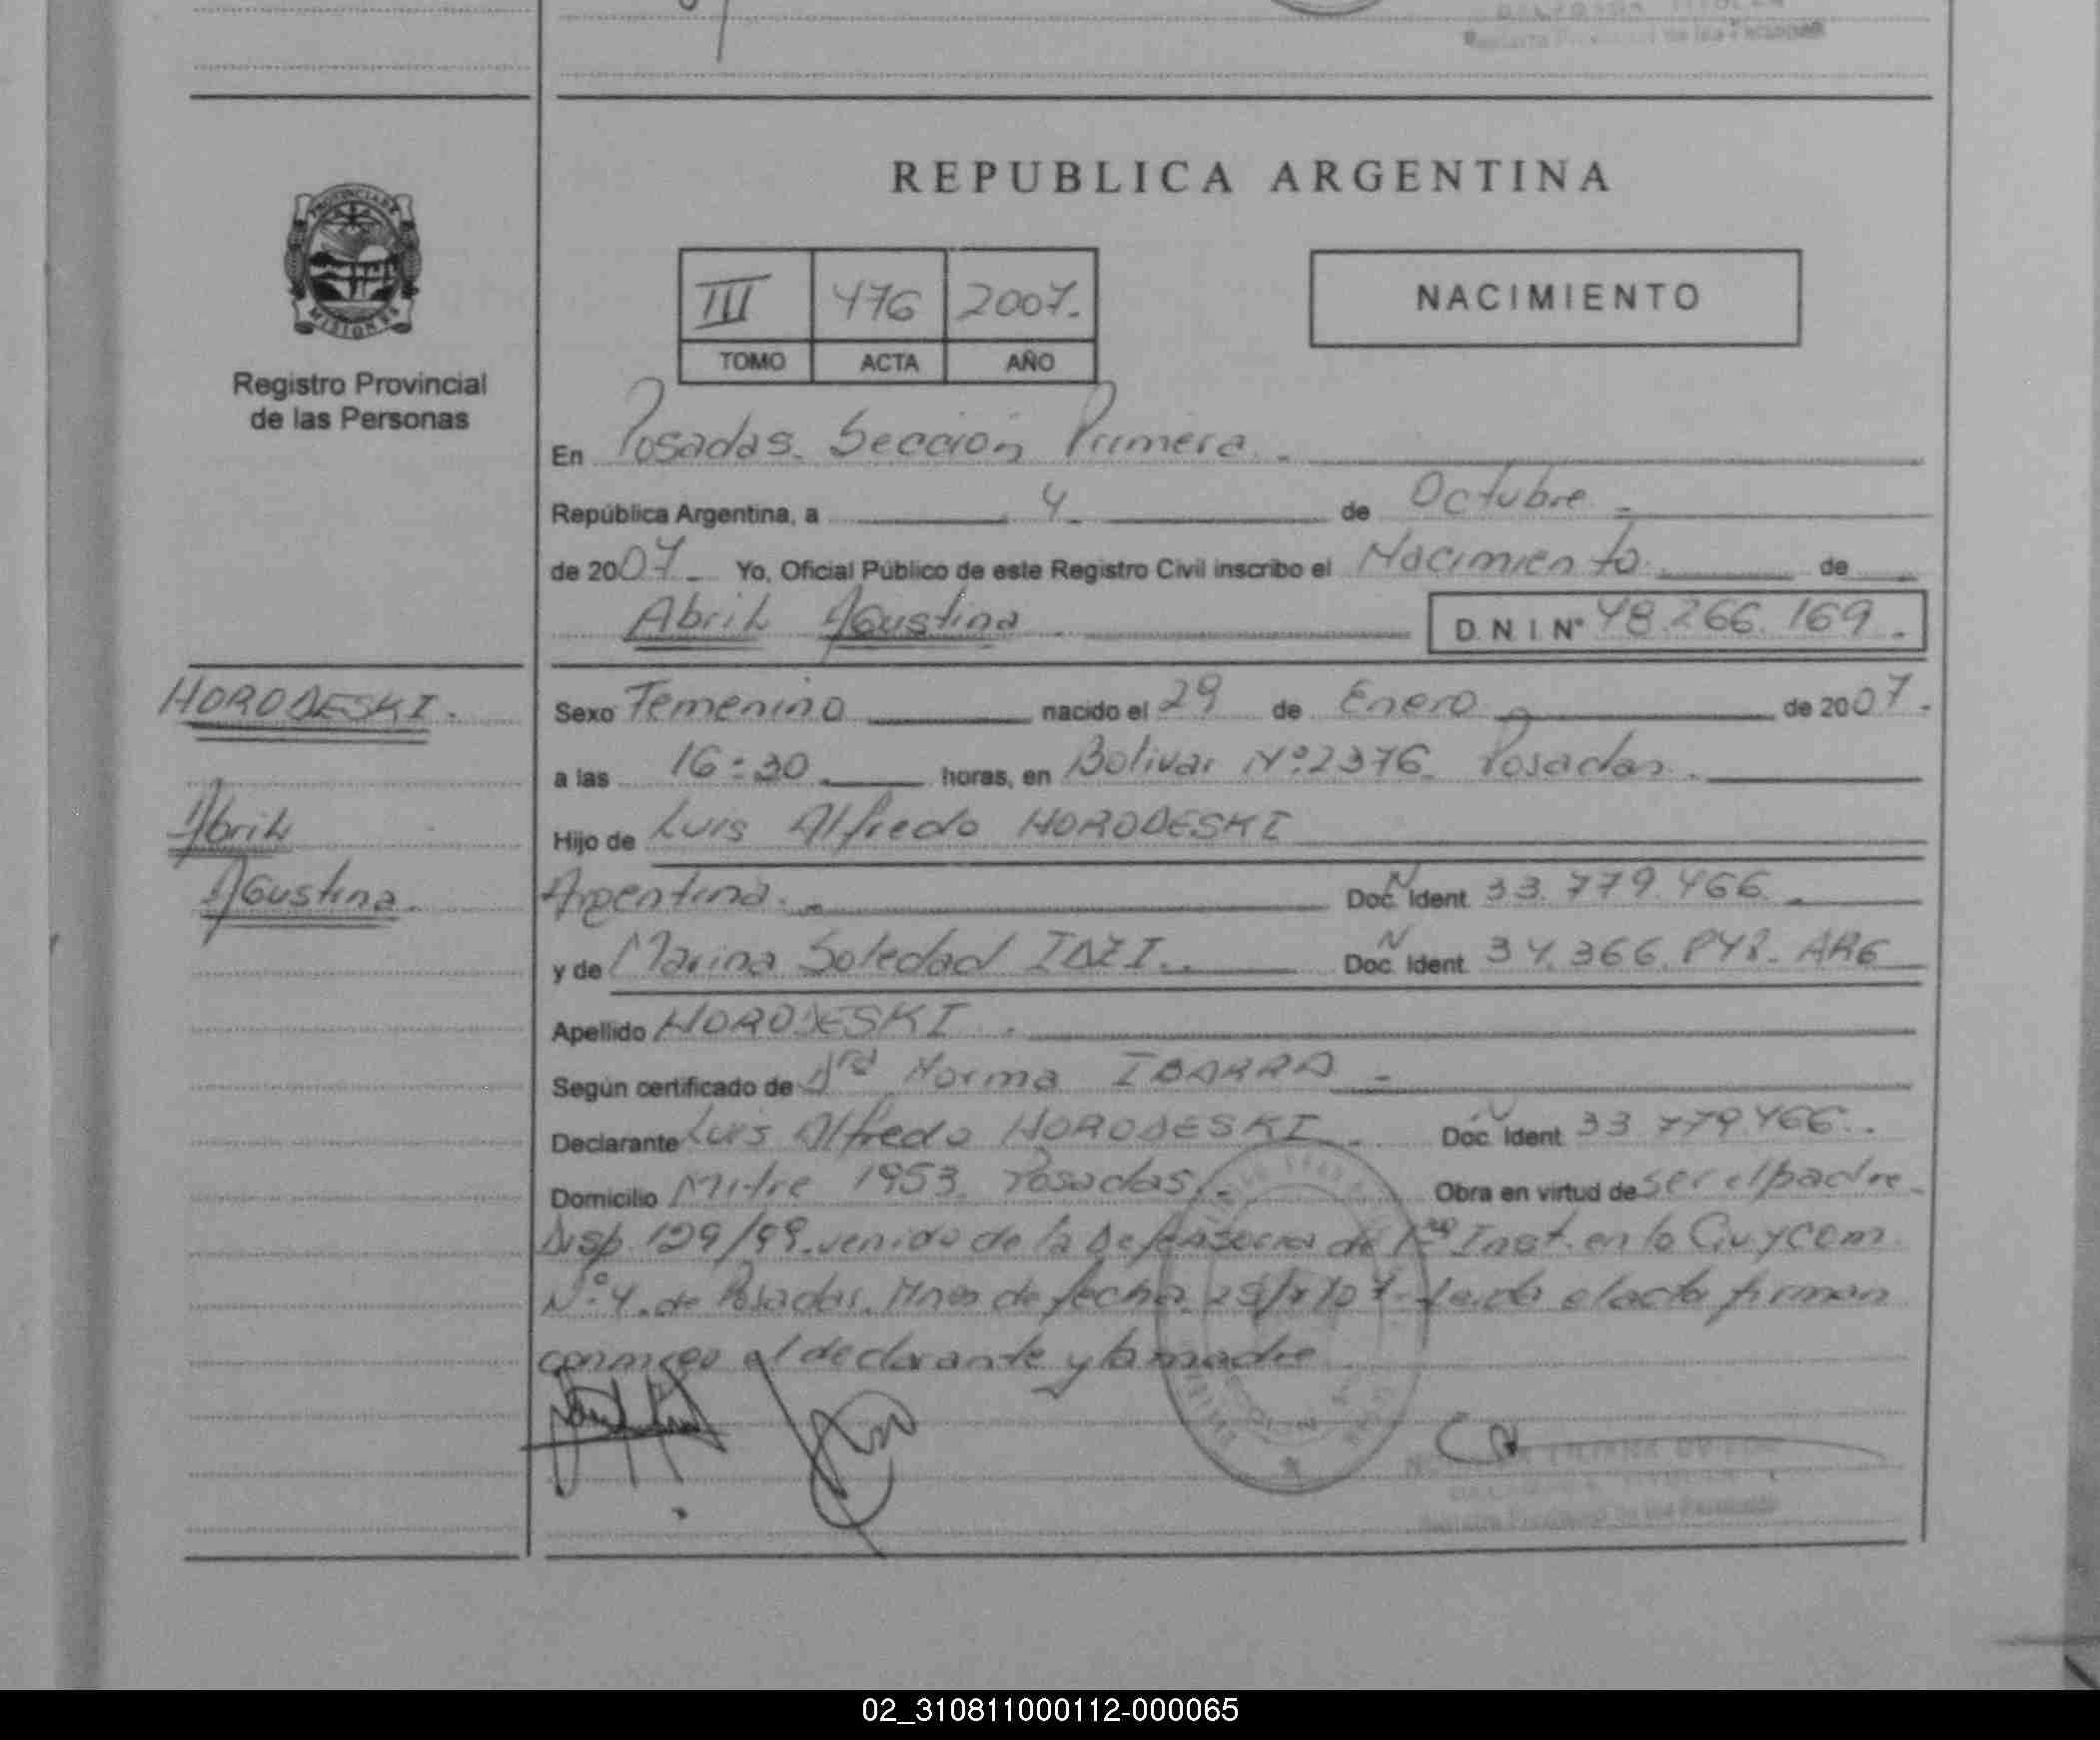 REPUBLICA ARGENTINA
PROVINCIA DE
MISIONES
Registro Provincial
de las Personas
III 476 2007.
TOMO ACTA AÑO
NACIMIENTO
En Posadas. Sección Primera.
República Argentina, a 4 de Octubre
de 2007 Yo, Oficial Público de este Registro Civil inscribo el Nacimiento de
Abril Agustina D N I Nº 48.266.169.
HORODESKI.
Abril
Agustina.
Sexo Femenino nacido el 29 de Enero de 2007.
a las 16:30 horas, en Bolivar Nº 2376. Posadas.
Hijo de Luis Alfredo HORODESKI
Argentina. Doc. Ident. 33.779.466.
y de Marina Soledad Doc. Ident. 34.366.848. ARG
Apellido HORODESKI.
Según certificado de Dra Norma IBARRA
Declarante Luis Alfredo HORODESKI. Doc. Ident. 33.779.466.
Domicilio Mitre 1953. Posadas. Obra en virtud de ser el padre
Disp. 129/99. venido de la Defensoria de 1ra Inst. en lo Civ y Com.
Nº 4. de Posadas. Mnes de fecha Leida el acta firman
conmigo el declarante y la madre
Registro Provincial de las Personas
02_310811000112-000065